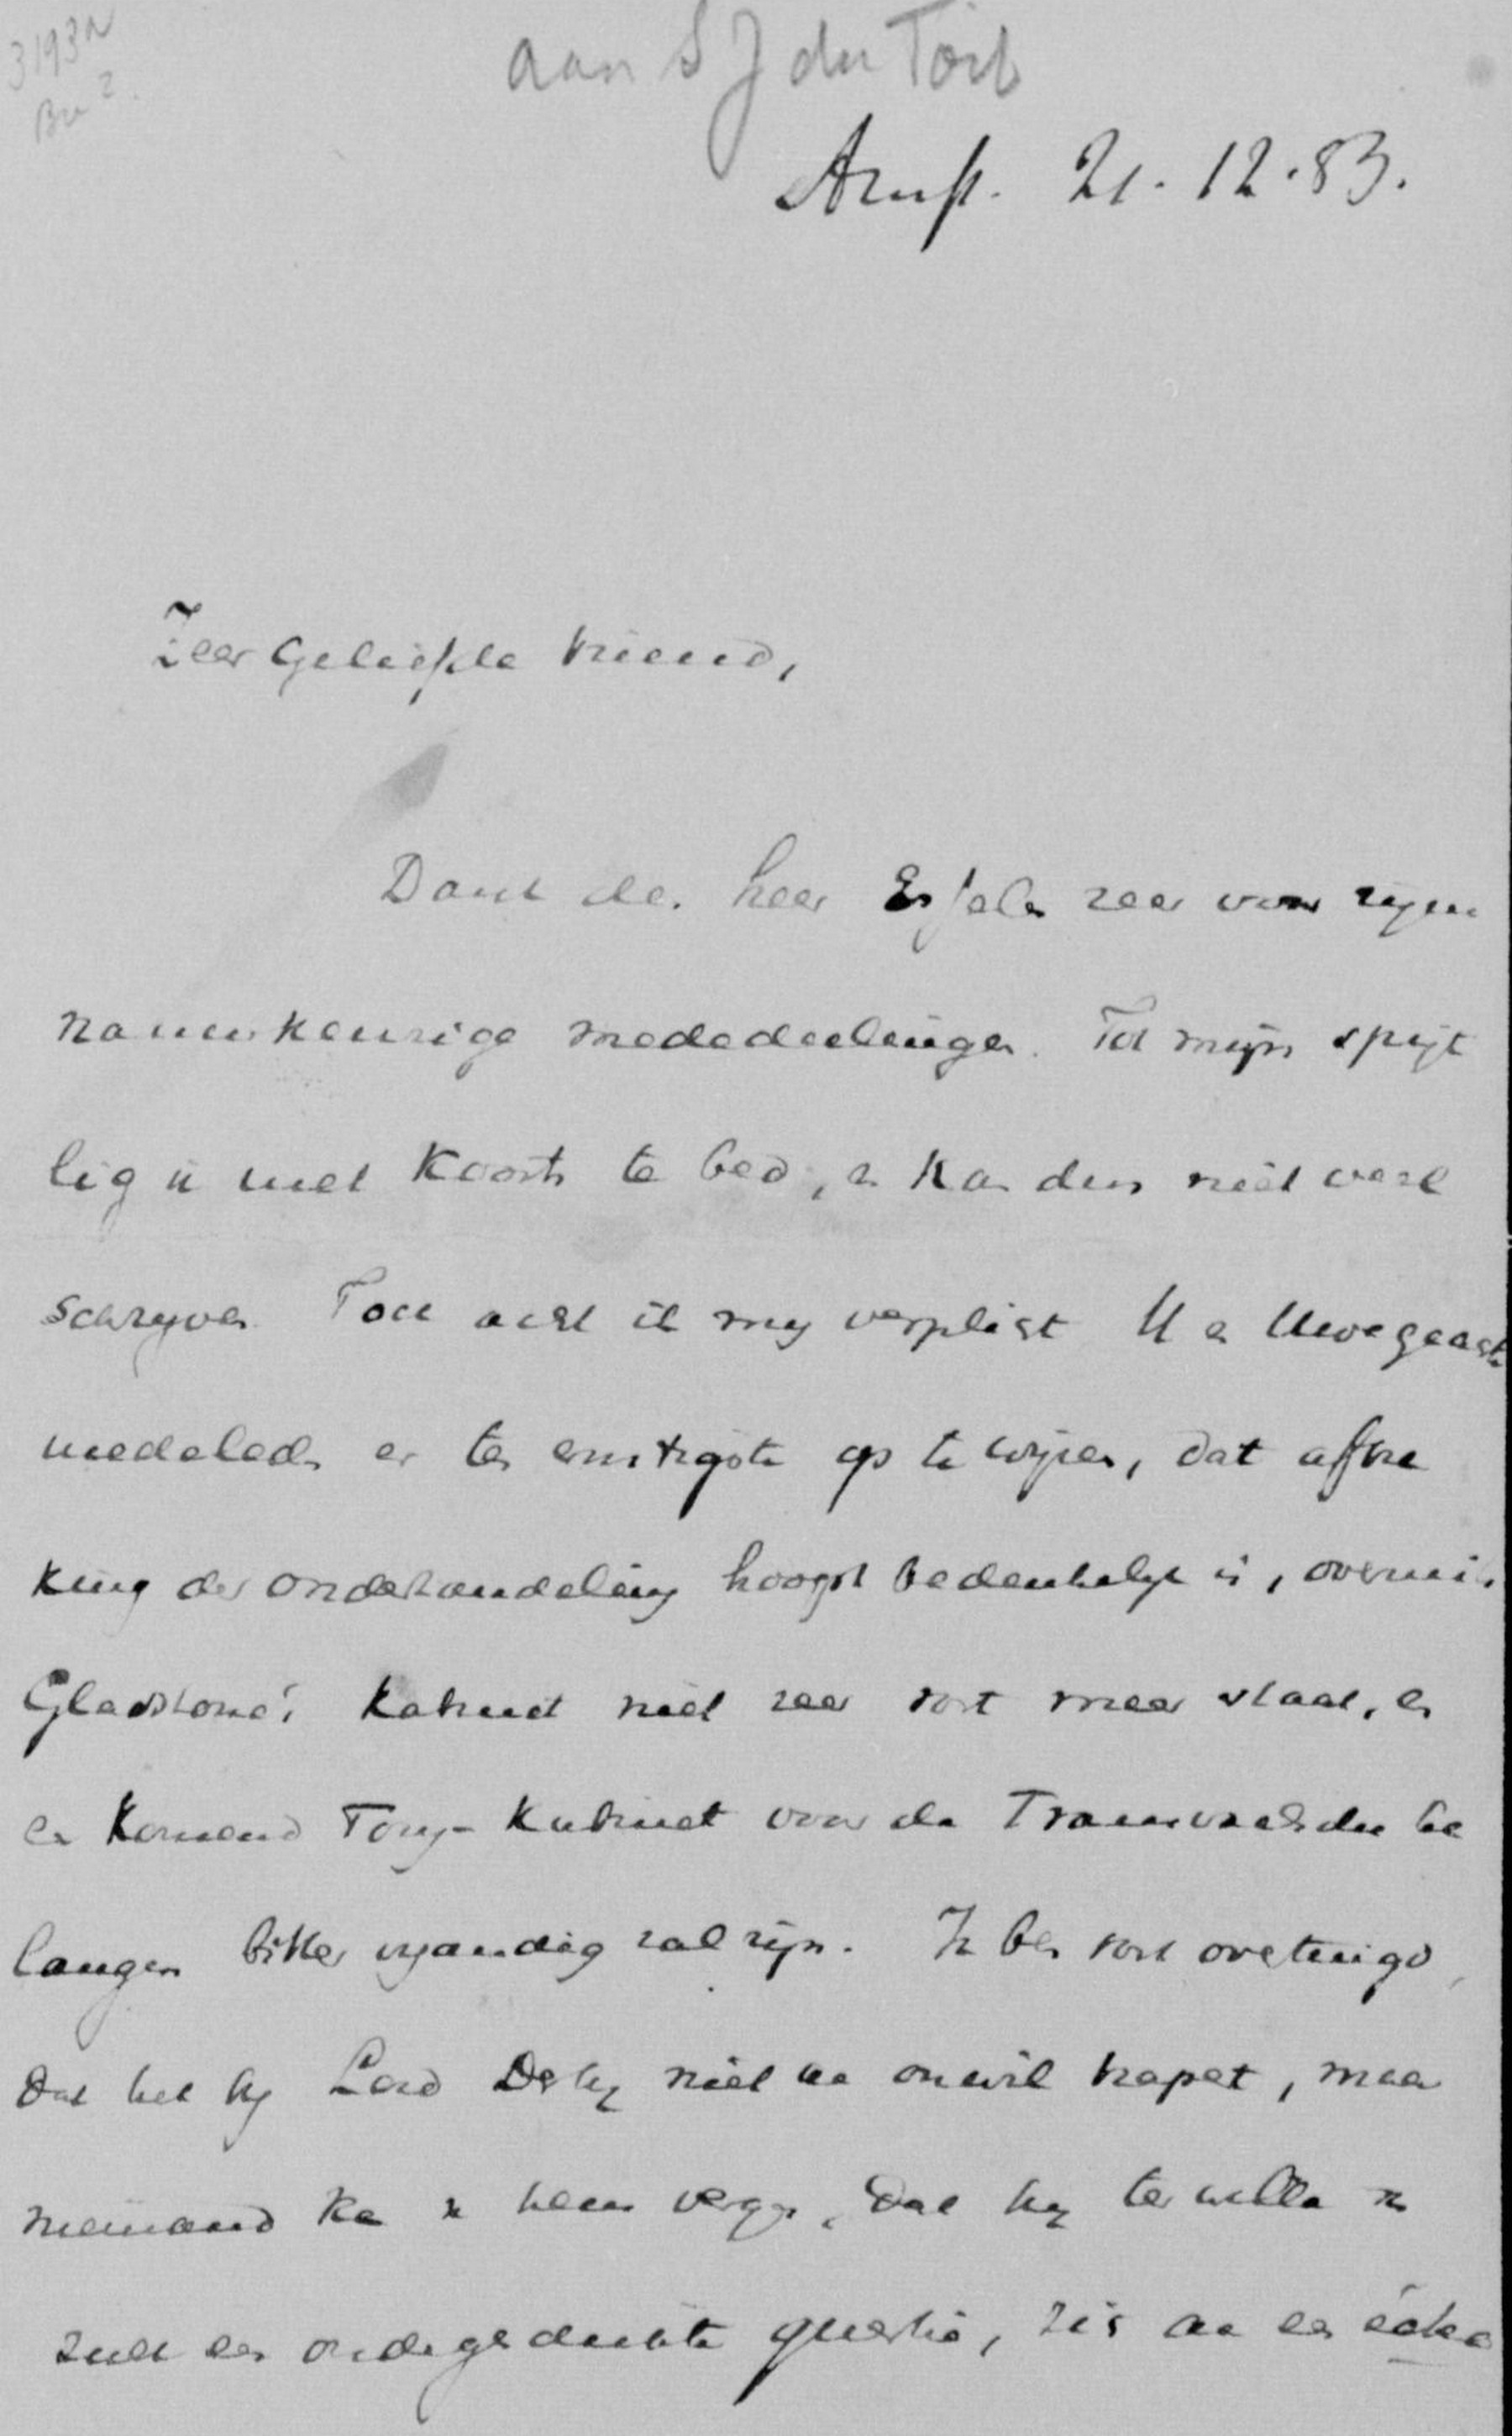 3193a
aan S J du Toit
Amst. 21.12.83.
Zeer Geliefde Vriend,
Dank de. heer Esselen zeer voor zijne
nauwkeurige mededeelingen. Tot mijn spijt
lig ik met koorts te bed, en kan dus niet veel
schryven Toch acht ik my verplicht U en Uwe geachte
medeleden er ten ernstigste op te wijzen, dat afbre
king der onderhandeling hoogst bedenkelyk is, overmits
Gladstone's Kabinet niet zeer vast meer staat, en
een komend Tory-Kabinet voor de Transvaalsche be
langen bitter vyandig zal zijn. Ik ben vast overtuigd,
dat het by Lord Derby niet aan onwil hapert, maar
niemand kan van hem vergen, dat hy ter wille van
zulk een ondergeschikte quaestie, zich aan een échec